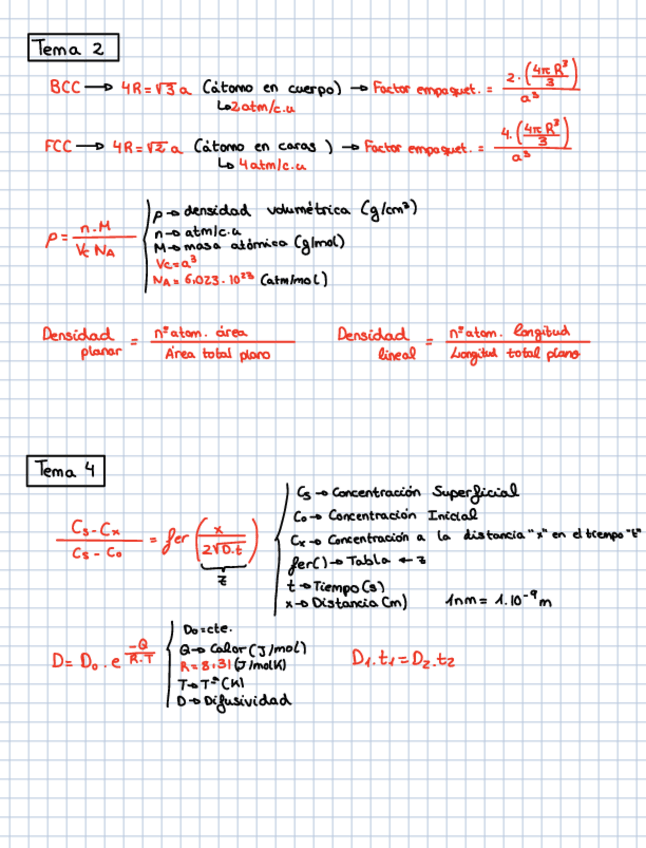 Tema 2
BCC → 4R = √3 a (átomo en cuerpo) → Factor empaquet. = 2·(4πR³/3) / a³
↳ 2 atm/c.u
FCC → 4R = √2 a (átomo en caras) → Factor empaquet. = 4·(4πR³/3) / a³
↳ 4 atm/c.u
ρ = n·M / Vc NA
ρ → densidad volumétrica (g/cm³)
n → atm/c.u
M → masa atómica (g/mol)
Vc = a³
NA = 6,023·10²³ (atm/mol)
Densidad planar = nº atom. área / Área total plano
Densidad lineal = nº atom. longitud / Longitud total plano
Tema 4
Cs - Cx / Cs - Co = fer (x / 2√D.t)
z
Cs → Concentración Superficial
Co → Concentración Inicial
Cx → Concentración a la distancia "x" en el tiempo "t"
fer() → Tabla ← z
t → Tiempo (s)
x → Distancia (m) 1nm = 1·10⁻⁹ m
D = Do · e^(-Q / R.T)
Do = cte.
Q → Calor (J/mol)
R = 8,31 (J/molK)
T → Tª (K)
D → Difusividad
D₁.t₁ = D₂.t₂